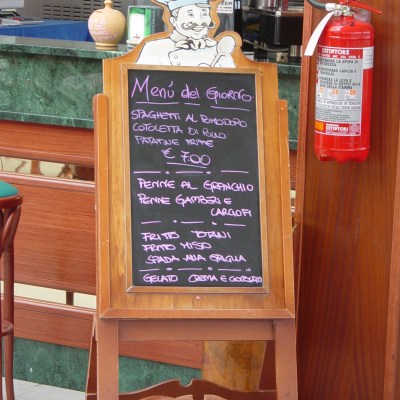 Menú del Giorno
SPAGHETTI AL POMODORO
COTOLETTA DI POLLO
PATATINE
€ 7,00
PENNE AL GRANCHIO
PENNE GAMBERI E
CARCIOFI
FRITTO TOTANI
FRITTO MISO
SPADA ALLA GRIGLIA
GELATO CREMA E CIOCCOLATO
ESTINTORE